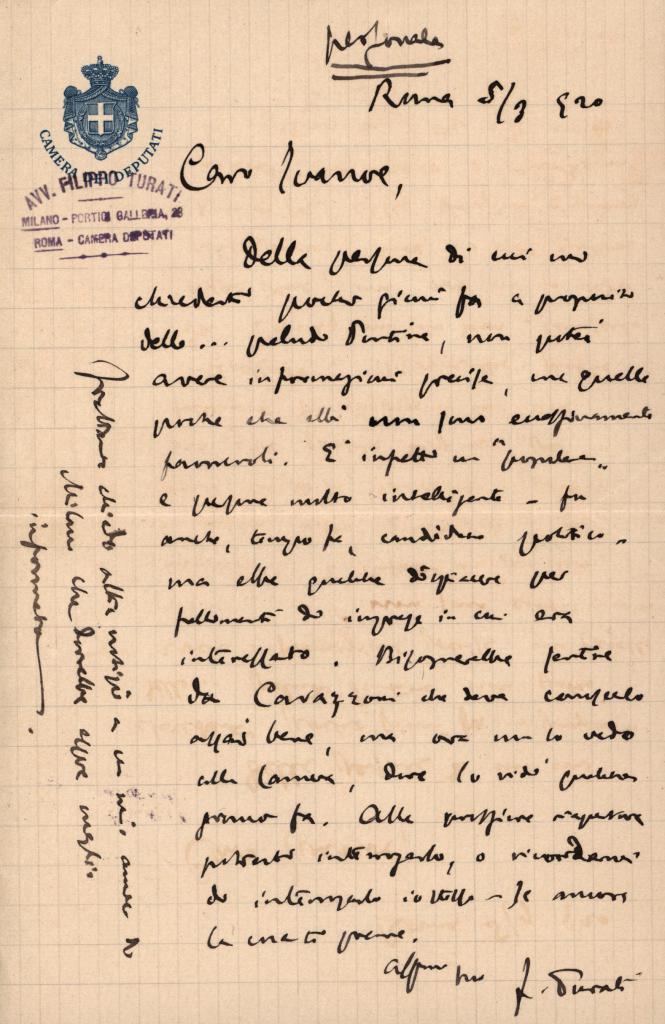 personale
Roma 5/3 920
CAMERA DEI DEPUTATI
AVV. FILIPPO TURATI
MILANO - PORTICI GALLERIA, 23
ROMA - CAMERA DEPUTATI
Caro Ivanoe,
Della persona di cui mi
chiedesti pochi giorni fa a proposito
delle... paludi Pontine, non potei
avere informazioni precise, ma quelle
poche che ebbi non sono
favorevoli. È infatti un "popolare"
e persona molto intelligente - fu
anche, tempo fa, candidato politico -
ma ebbe qualche dispiacere per
fallimenti di imprese in cui era
interessato. Bisognerebbe sentire
da Cavazzoni che deve conoscerlo
assai bene, ma ora non lo vedo
alla Camera, dove lo vidi qualche
giorno fa. Alla prossima riapertura
potresti interrogarlo, o ricordarmi
di interrogarlo io stesso - se ancora
la cosa ti preme.
Aff.mo tuo F. Turati
Frattanto chiedo altre notizie a un mio amico di
Milano che dovrebbe essere meglio
informato.